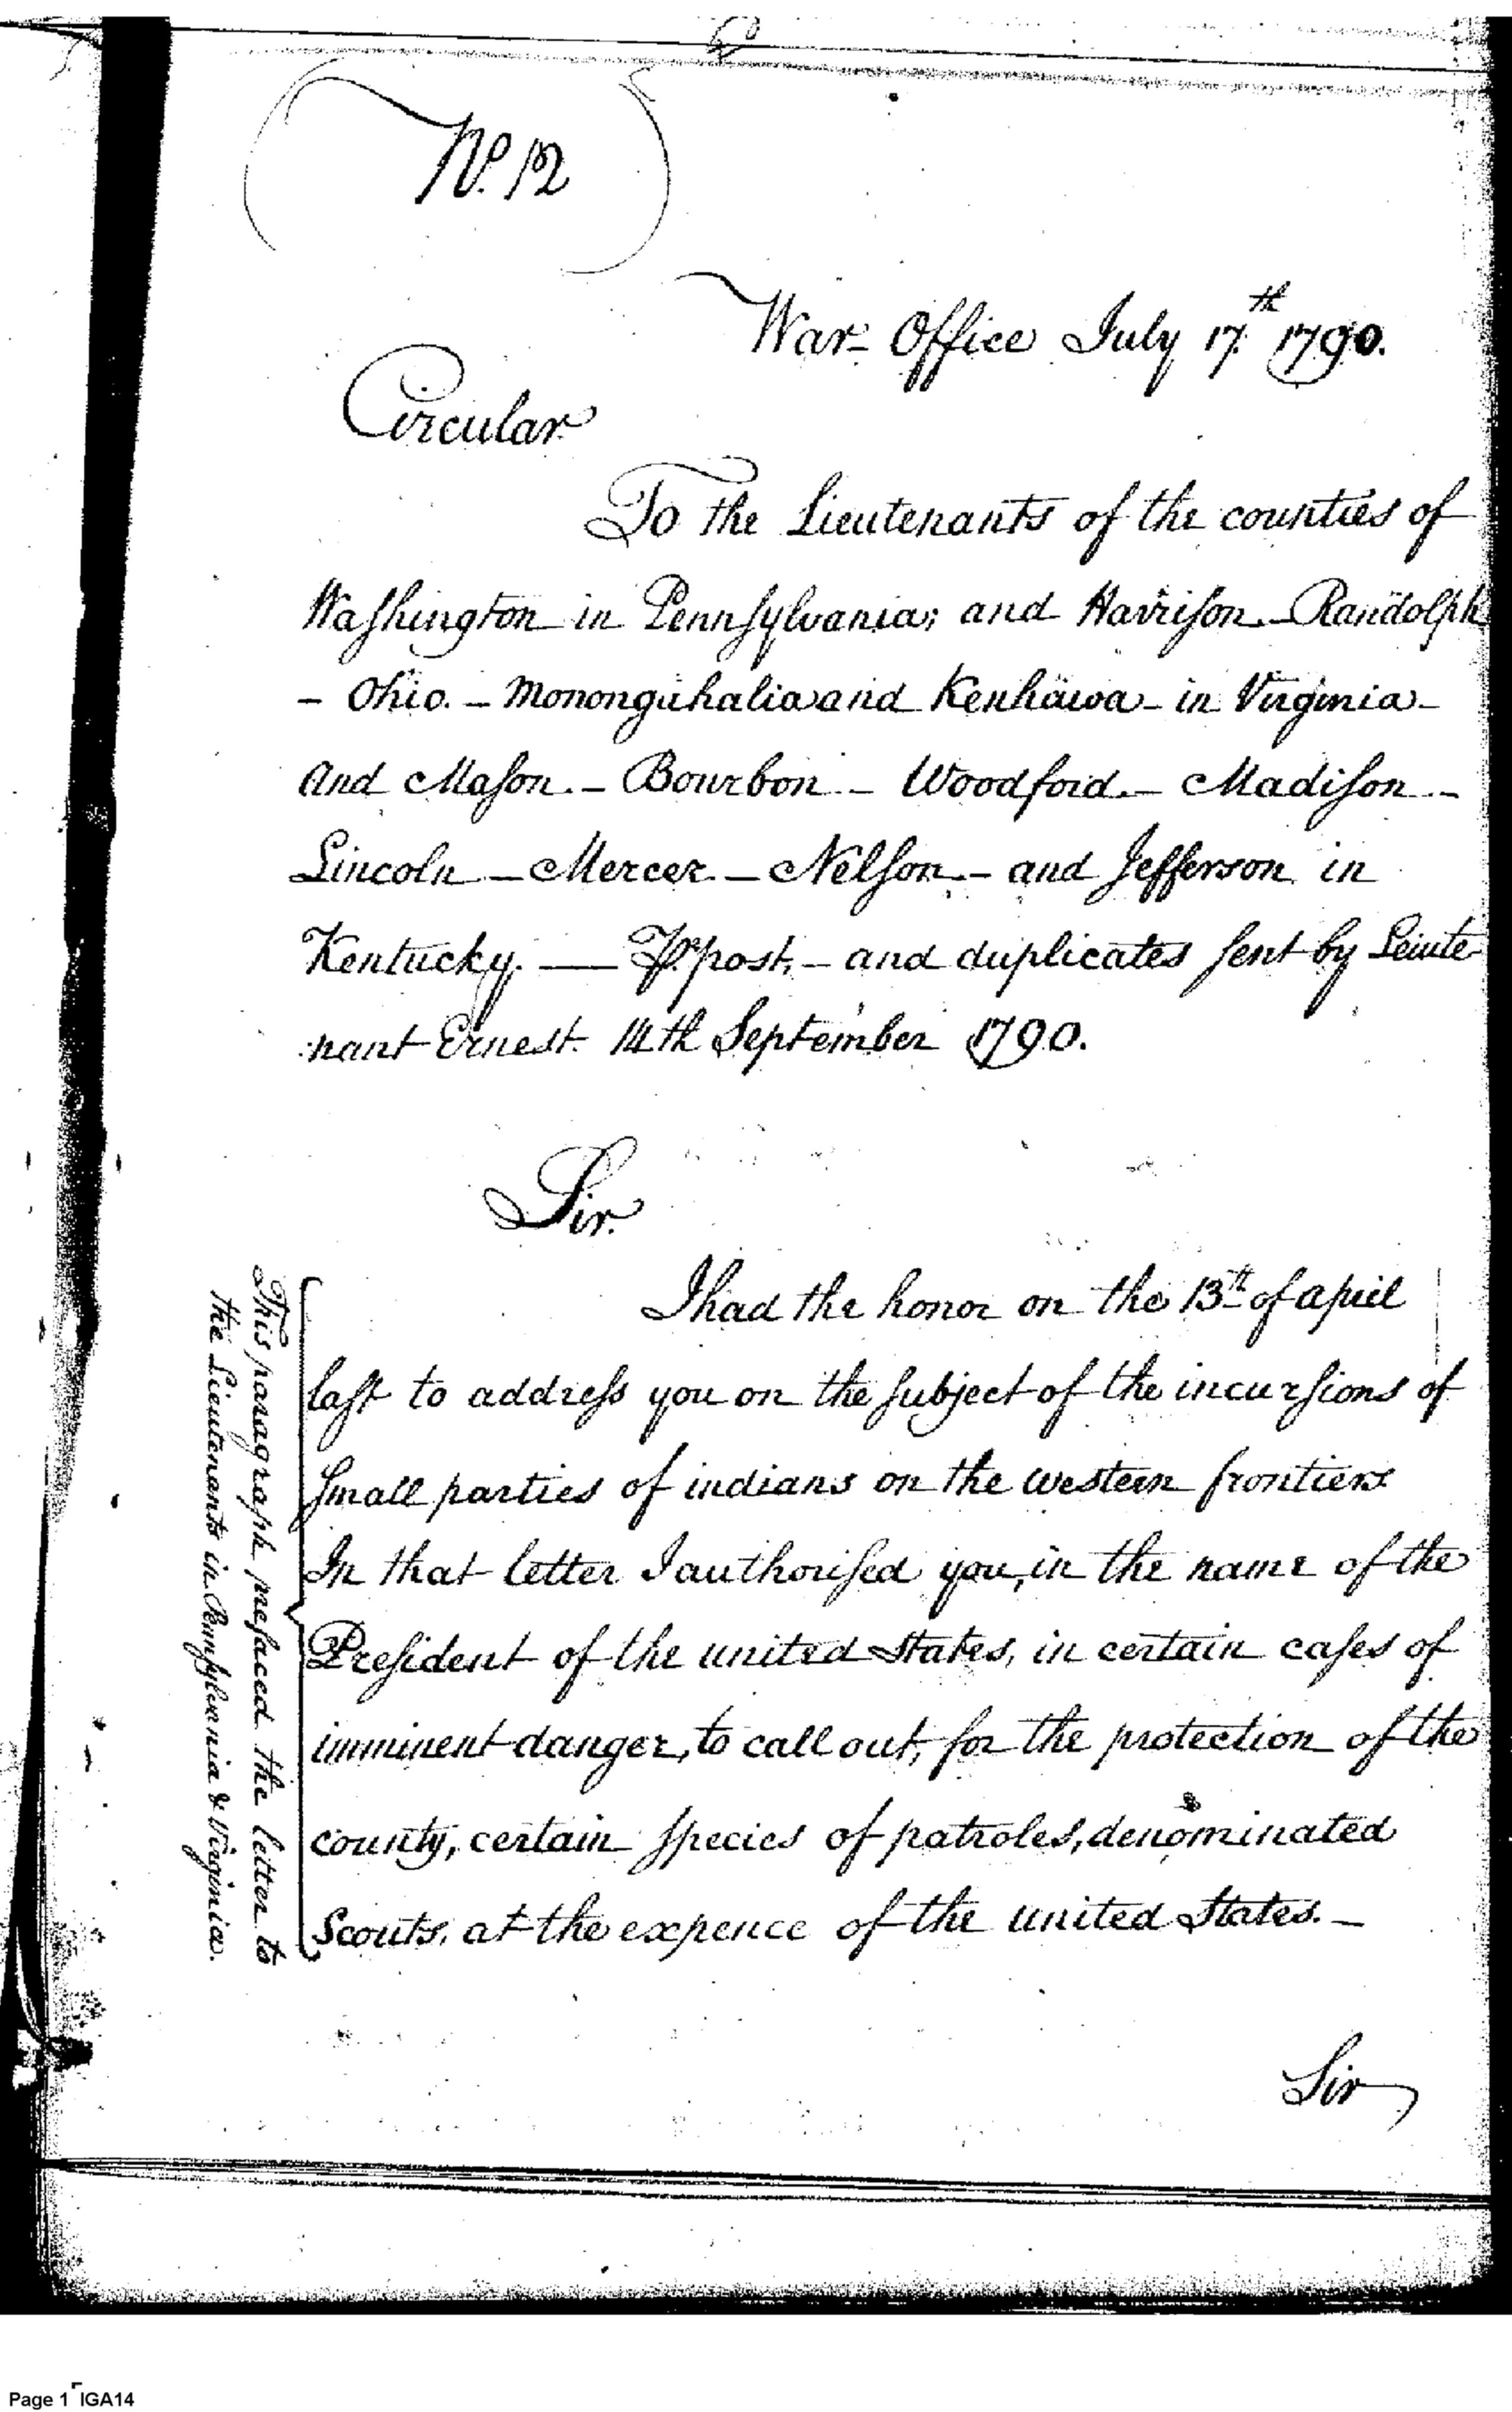 No. 12
War Office July 17th 1790.
Circular
To the Lieutenants of the counties of
Washington in Pennsylvania; and Harrison. – Randolph
– Ohio. – Mononguhalia and Kenhawa – in Virginia –
And Mason. – Bourbon – Woodford. – Madison –
Lincoln – Mercer – Nelson. – and Jefferson in
Kentucky. — Pr. post, – and duplicates sent by Leiute
nant Ernest. 14th September 1790.
Sir.
I had the honor on the 13th of april
last to address you on the subject of the incursions of
small parties of indians on the western frontiers.
In that letter I authorised you, in the name of the
President of the united States, in certain cases of
imminent danger, to call out, for the protection of the
county, certain species of patroles, denominated
Scouts, at the expence of the united States. –
This paragraph prefaced the letter to
the Lieutenants in Pennsylvania & Virginia.
Sir
Page 1 IGA14